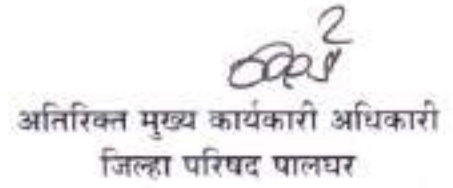 अतिरिक्त मुख्य कार्यकारी अधिकारी
जिल्हा परिषद पालघर